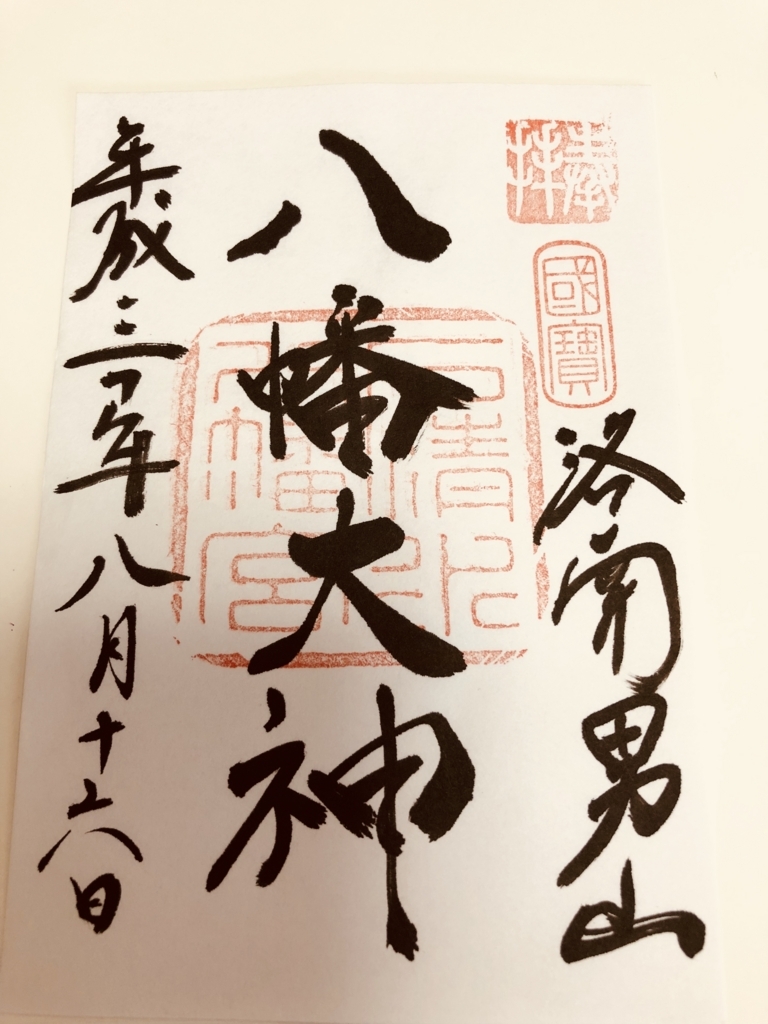 奉拝
國寶
洛南男山
八幡大神
石清水
八幡宮
平成三十年八月十六日